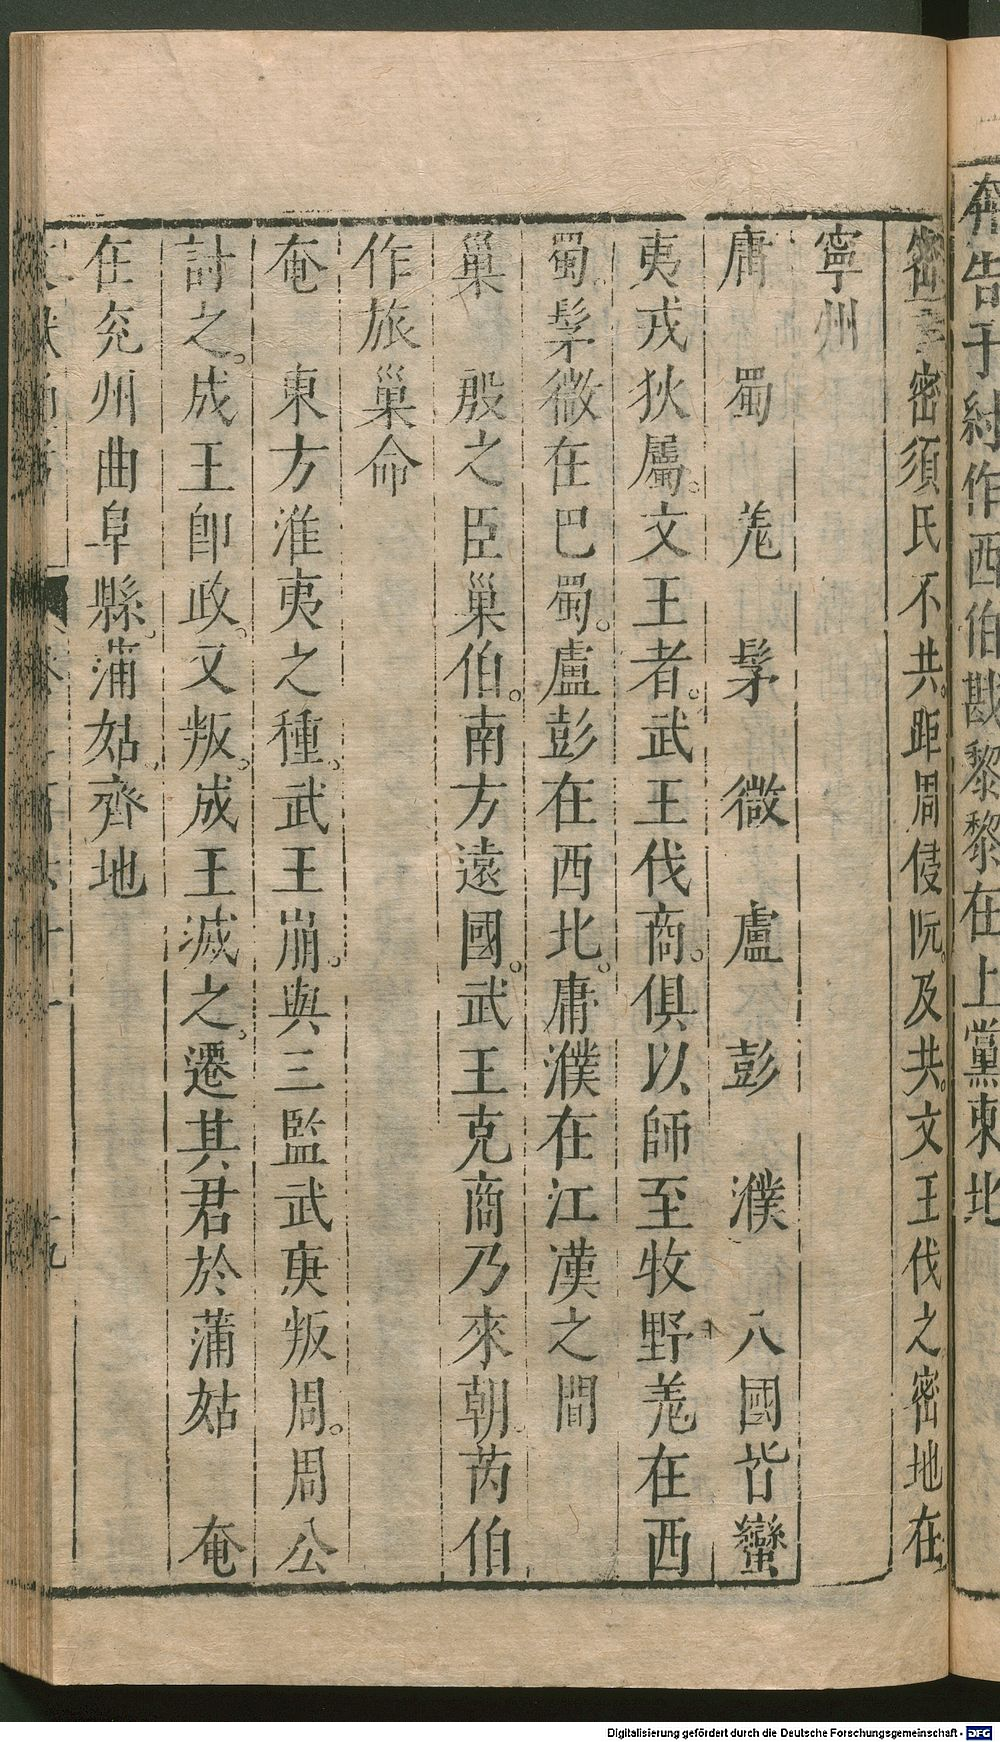 齊告于紂作西伯戡黎黎在上黨東北
密 密須氏不共。距周侵阮。及共。文王伐之密地在
寧州
庸 蜀 羌 髳 微 盧 彭 濮 八國皆蠻
夷戎狄屬。文王者。武王伐商。俱以師至牧野羌在西
蜀。髳微在巴蜀。盧彭在西北。庸濮在江漢之間
巢 殷之臣巢伯。南方遠國。武王克商乃來朝。芮伯
作旅巢命
奄 東方淮夷之種。武王崩。與三監武庚叛周。周公
討之。成王卽政。又叛。成王滅之。遷其君於蒲姑 奄
在兖州曲阜縣。蒲姑。齊地
Digitalisierung gefördert durch die Deutsche Forschungsgemeinschaft - DFG